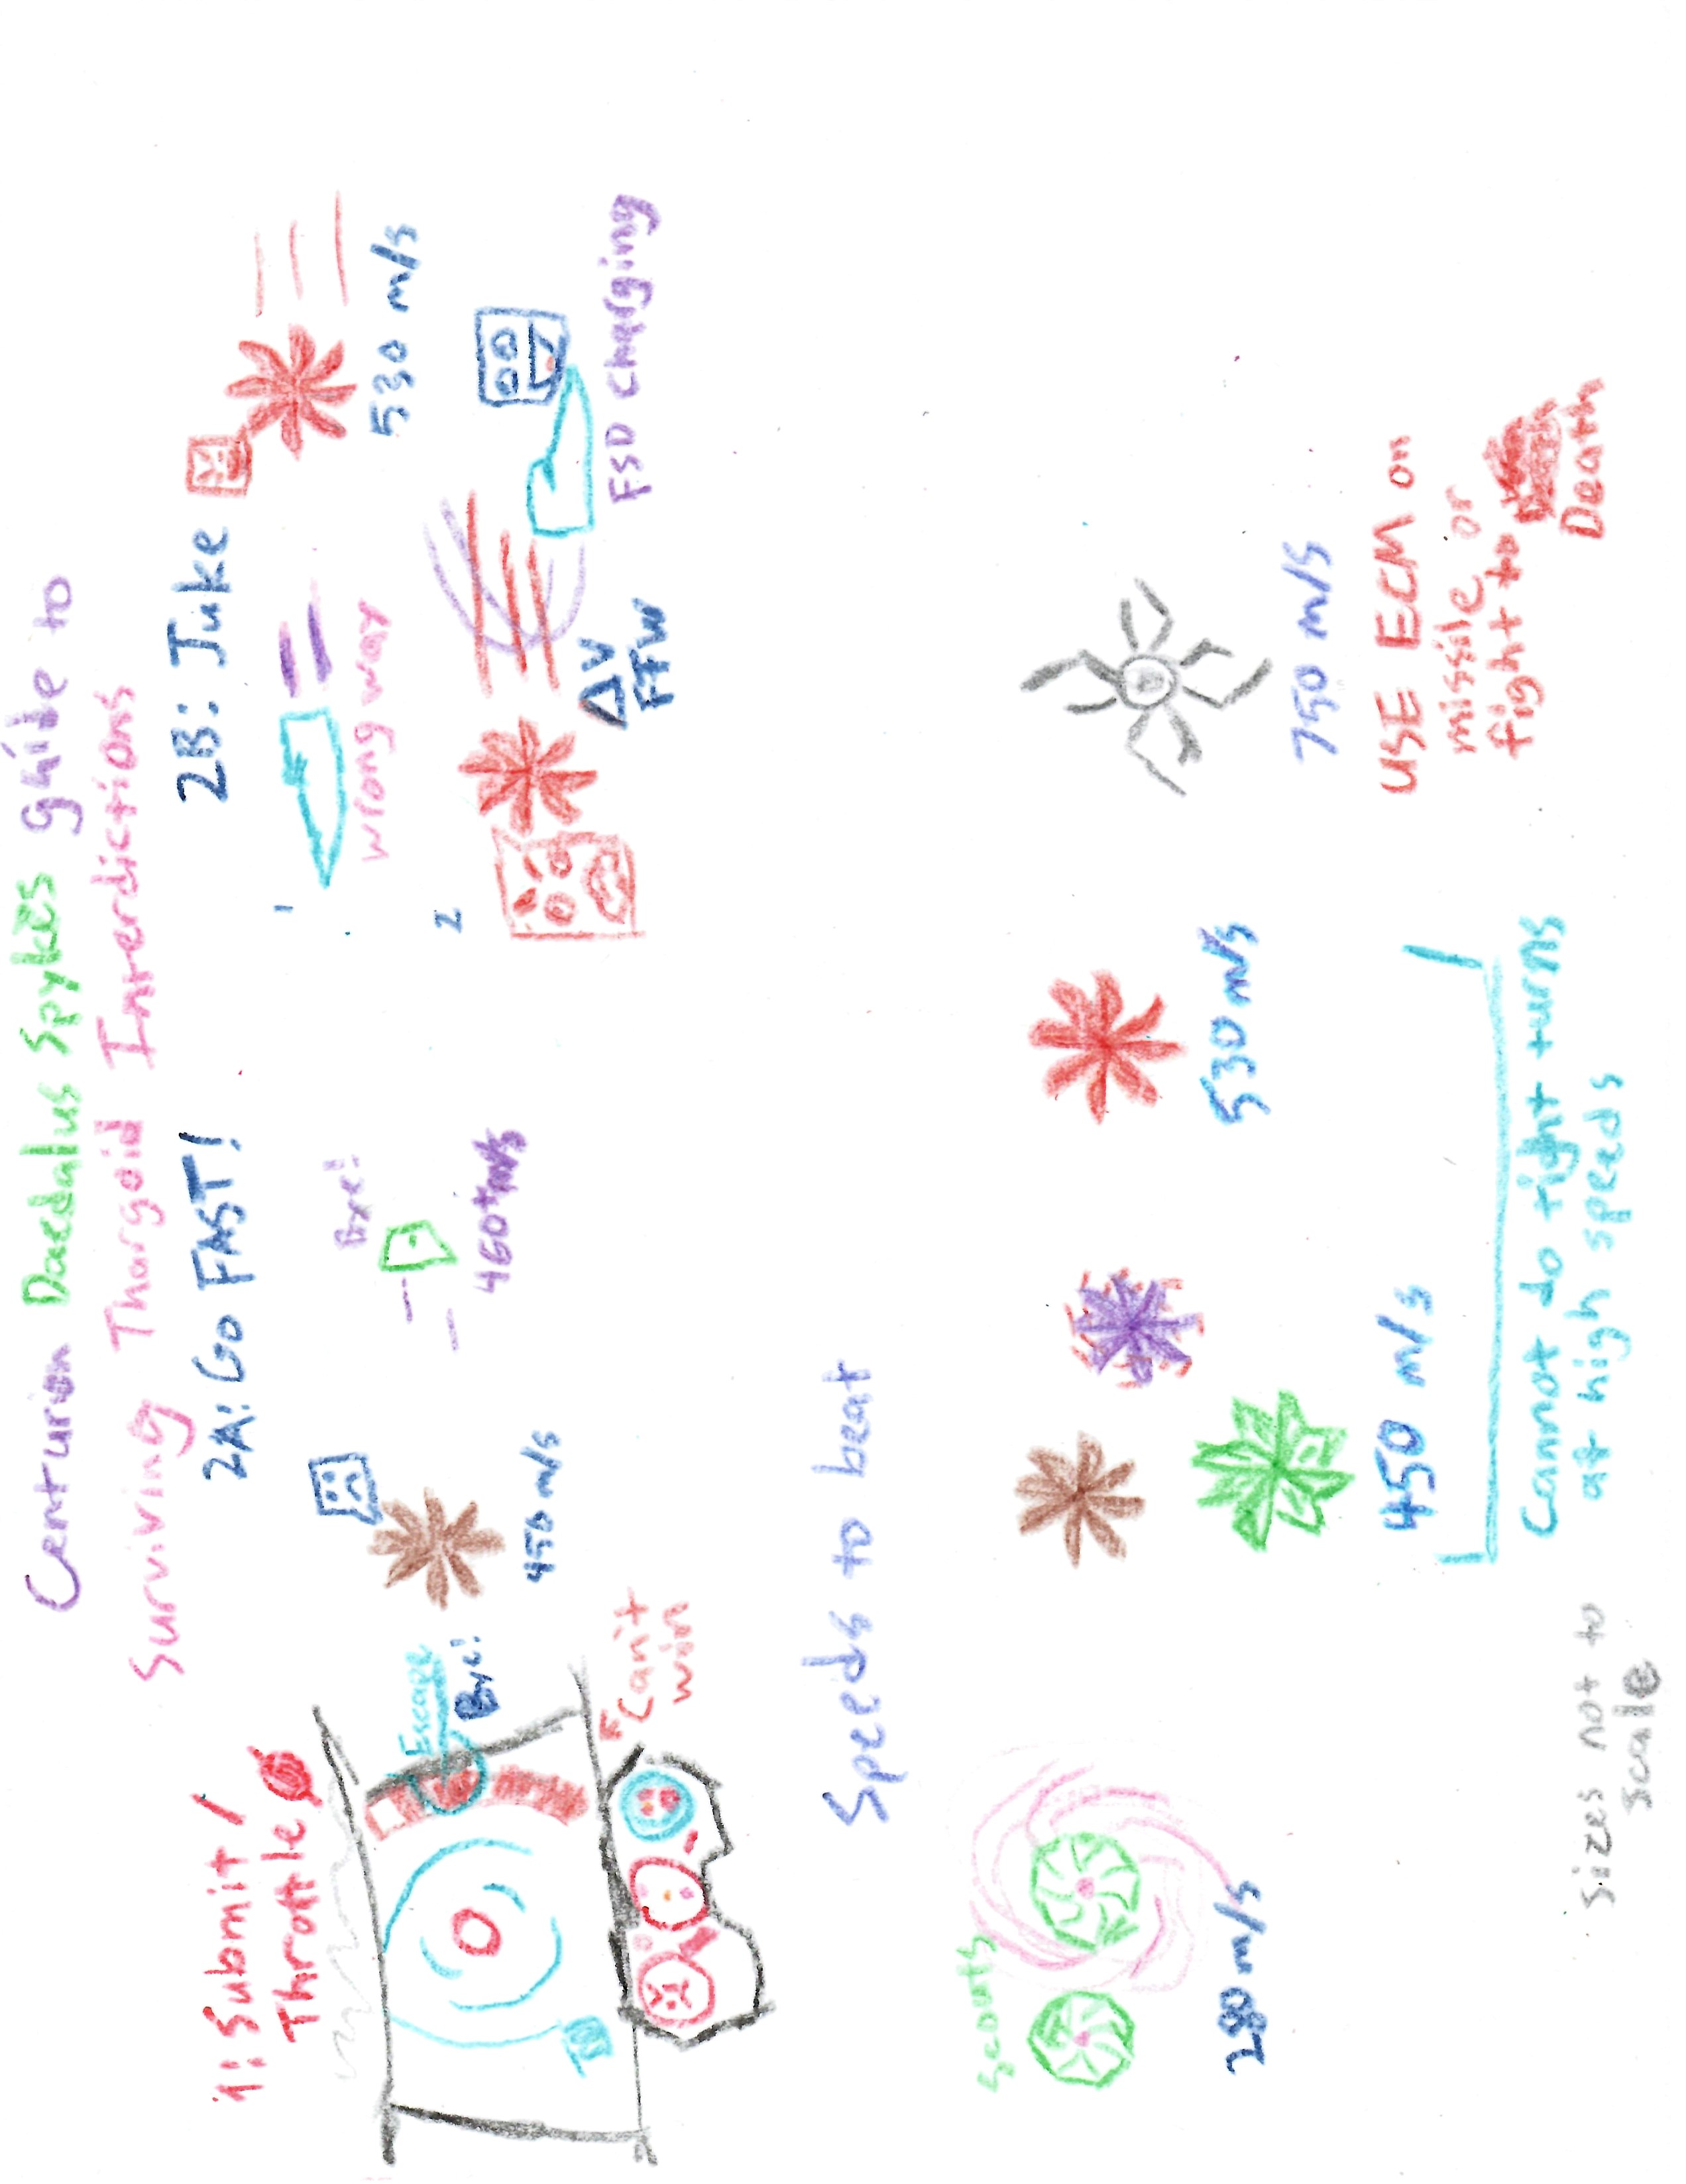 Centurion Daedalus Spykes guide to
Surviving Thargoid Interdictions
1: Submit /
Throttle 0
Escape
Bye!
Can't
win
2A: Go FAST!
Bye!
450 m/s
460+m/s
2B: Juke
1
wrong way
530 m/s
2
ΔV
FTW
FSD charging
Speeds to beat
Scouts
280 m/s
450 m/s
530 m/s
Cannot do tight turns
at high speeds
750 m/s
USE ECM on
missile or
fight to
Death
Sizes not to
scale